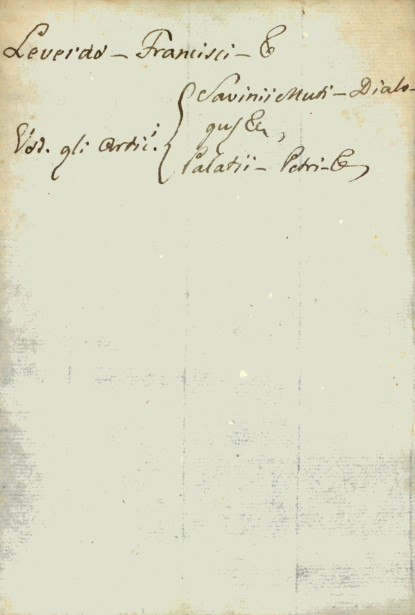 Leverdo - Francisci - &
Savinii Muti - Dialo-
gus &c,
Vid. gli Artic.i
Palatii - Petri - &,